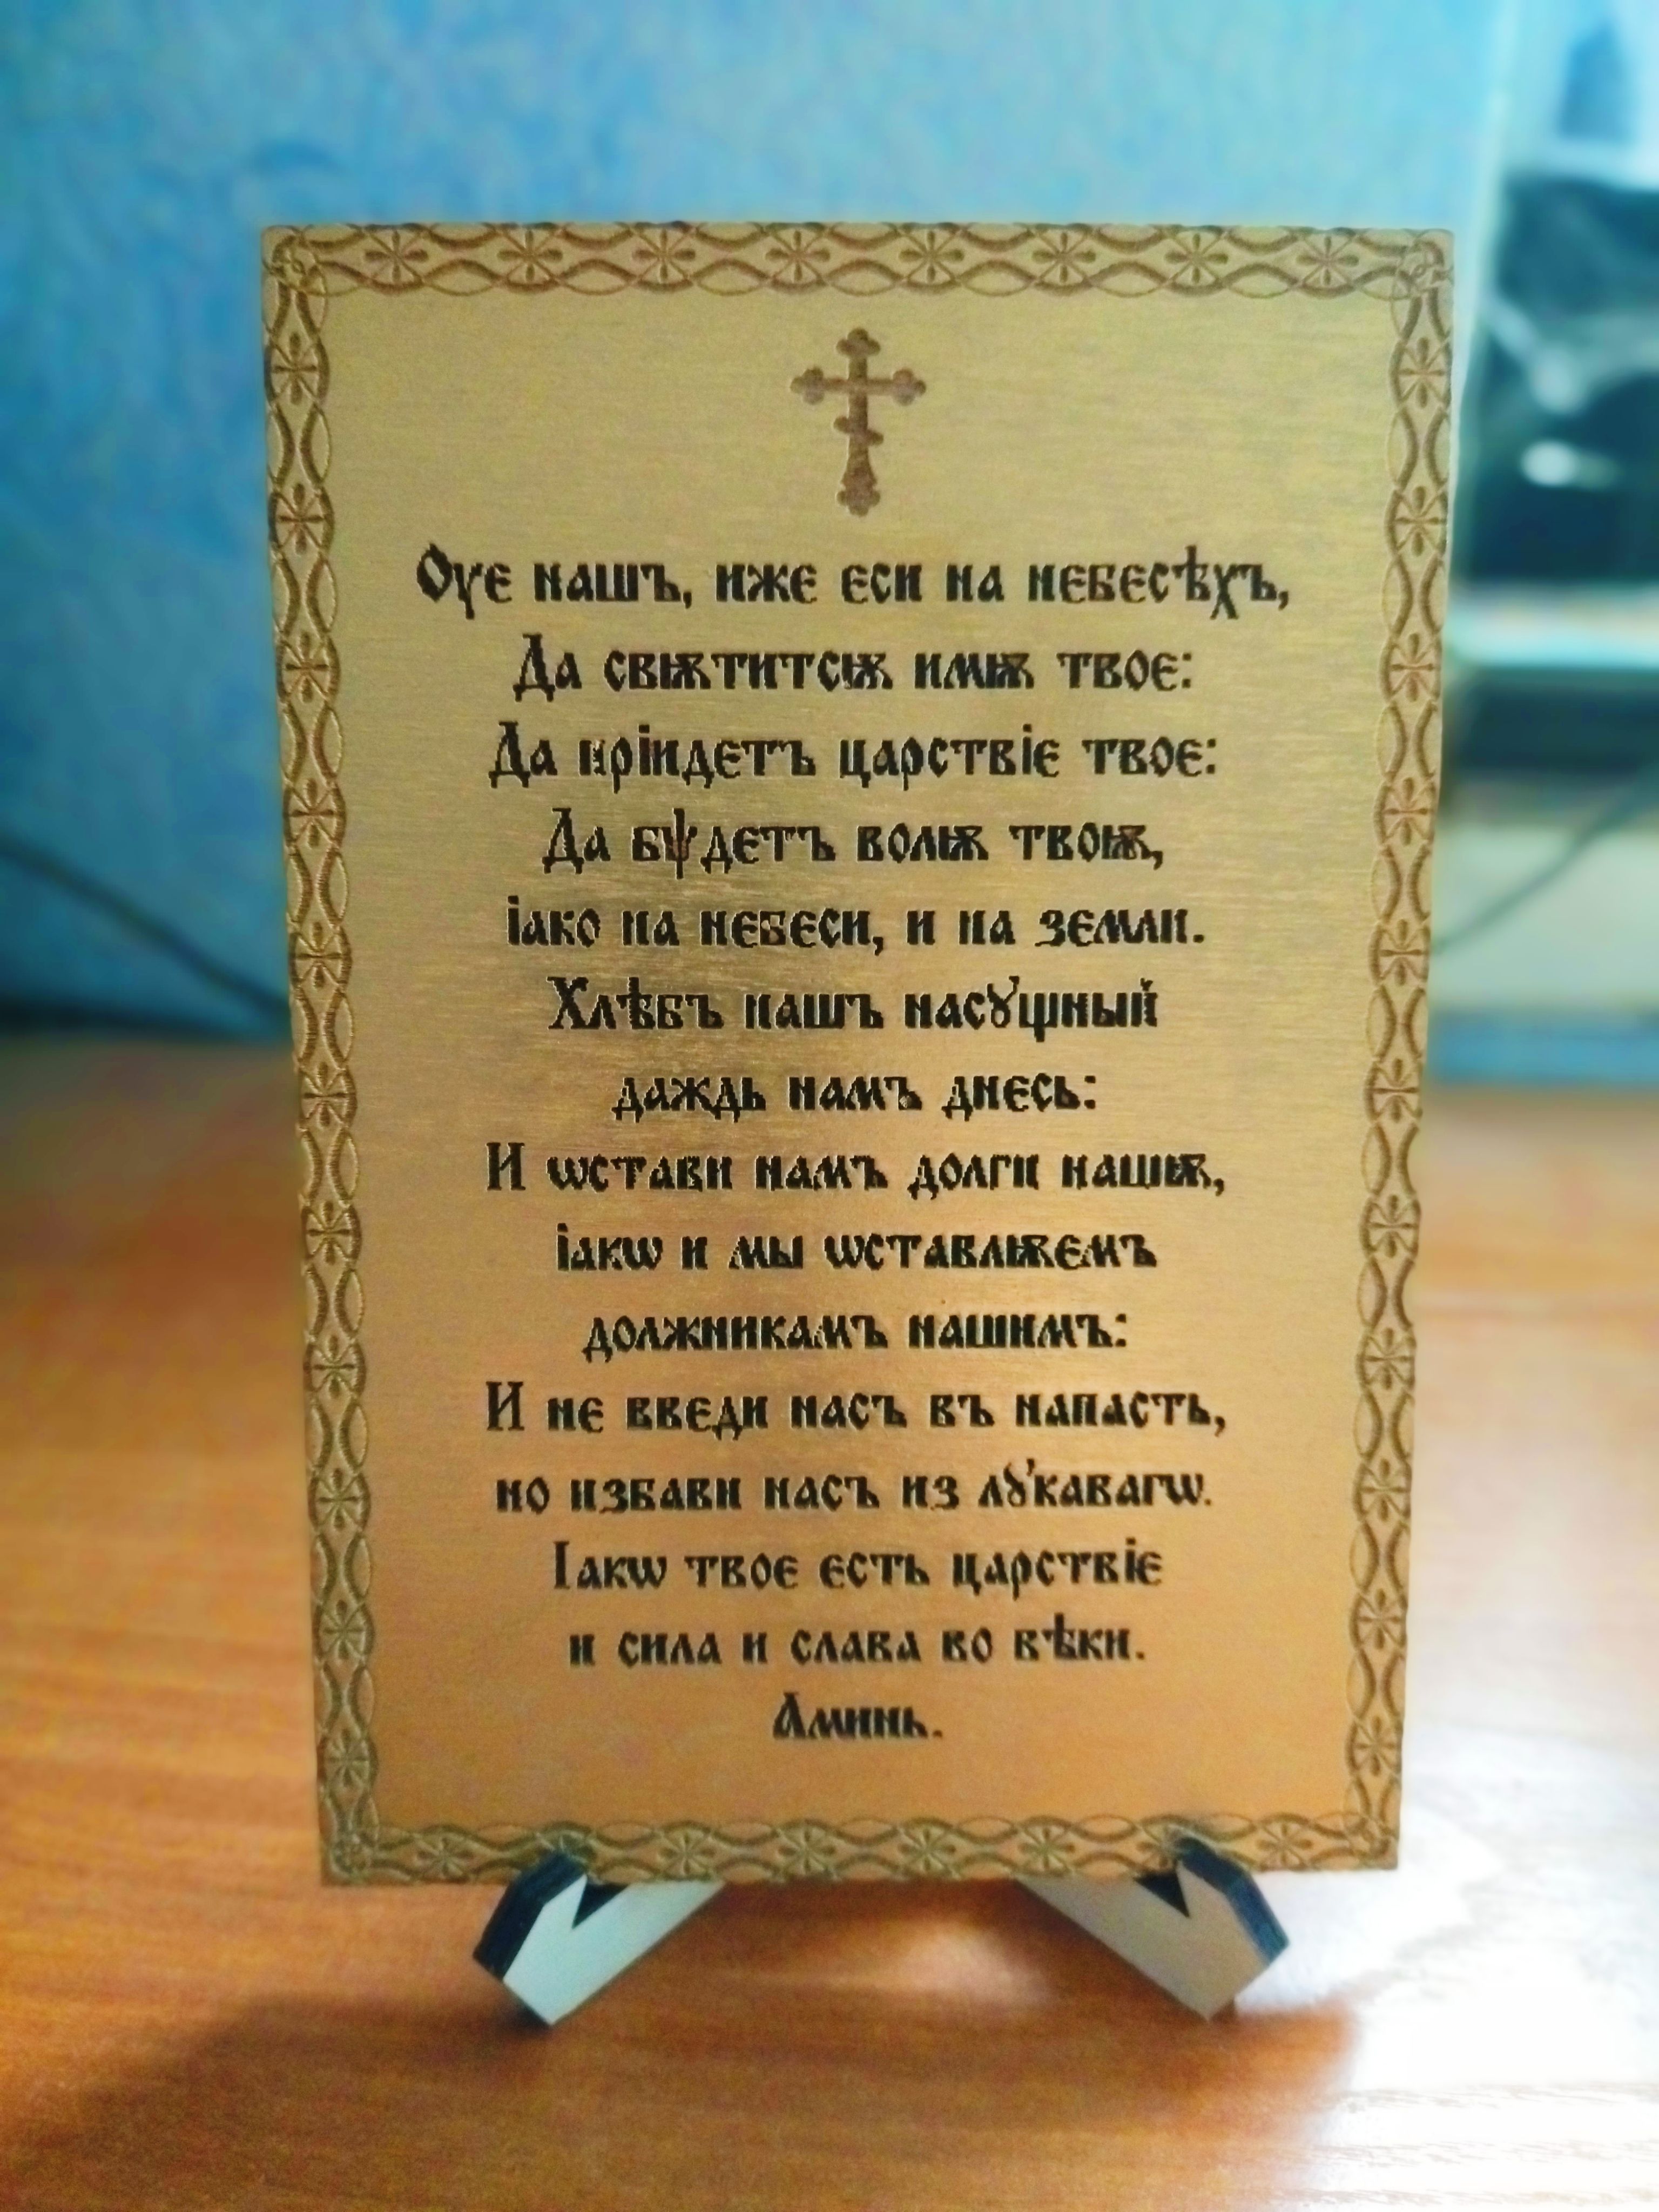 Оүе нашъ, иже еси на небесѣхъ,
Да свѭтитсѭ имѭ твое:
Да прїидетъ царствіе твое:
Да бѱдетъ волѭ твоѭ,
іако на небеси, и на земли.
Хлѣбъ нашъ насꙋщный
даждь намъ днесь:
И ѡстави намъ долги нашѭ,
іакѡ и мы ѡставлѭемъ
должникамъ нашимъ:
И не введи насъ въ напасть,
но избави насъ из лꙋкавагѡ.
Іакѡ твое есть царствіе
и сила и слава во вѣки.
Аминь.